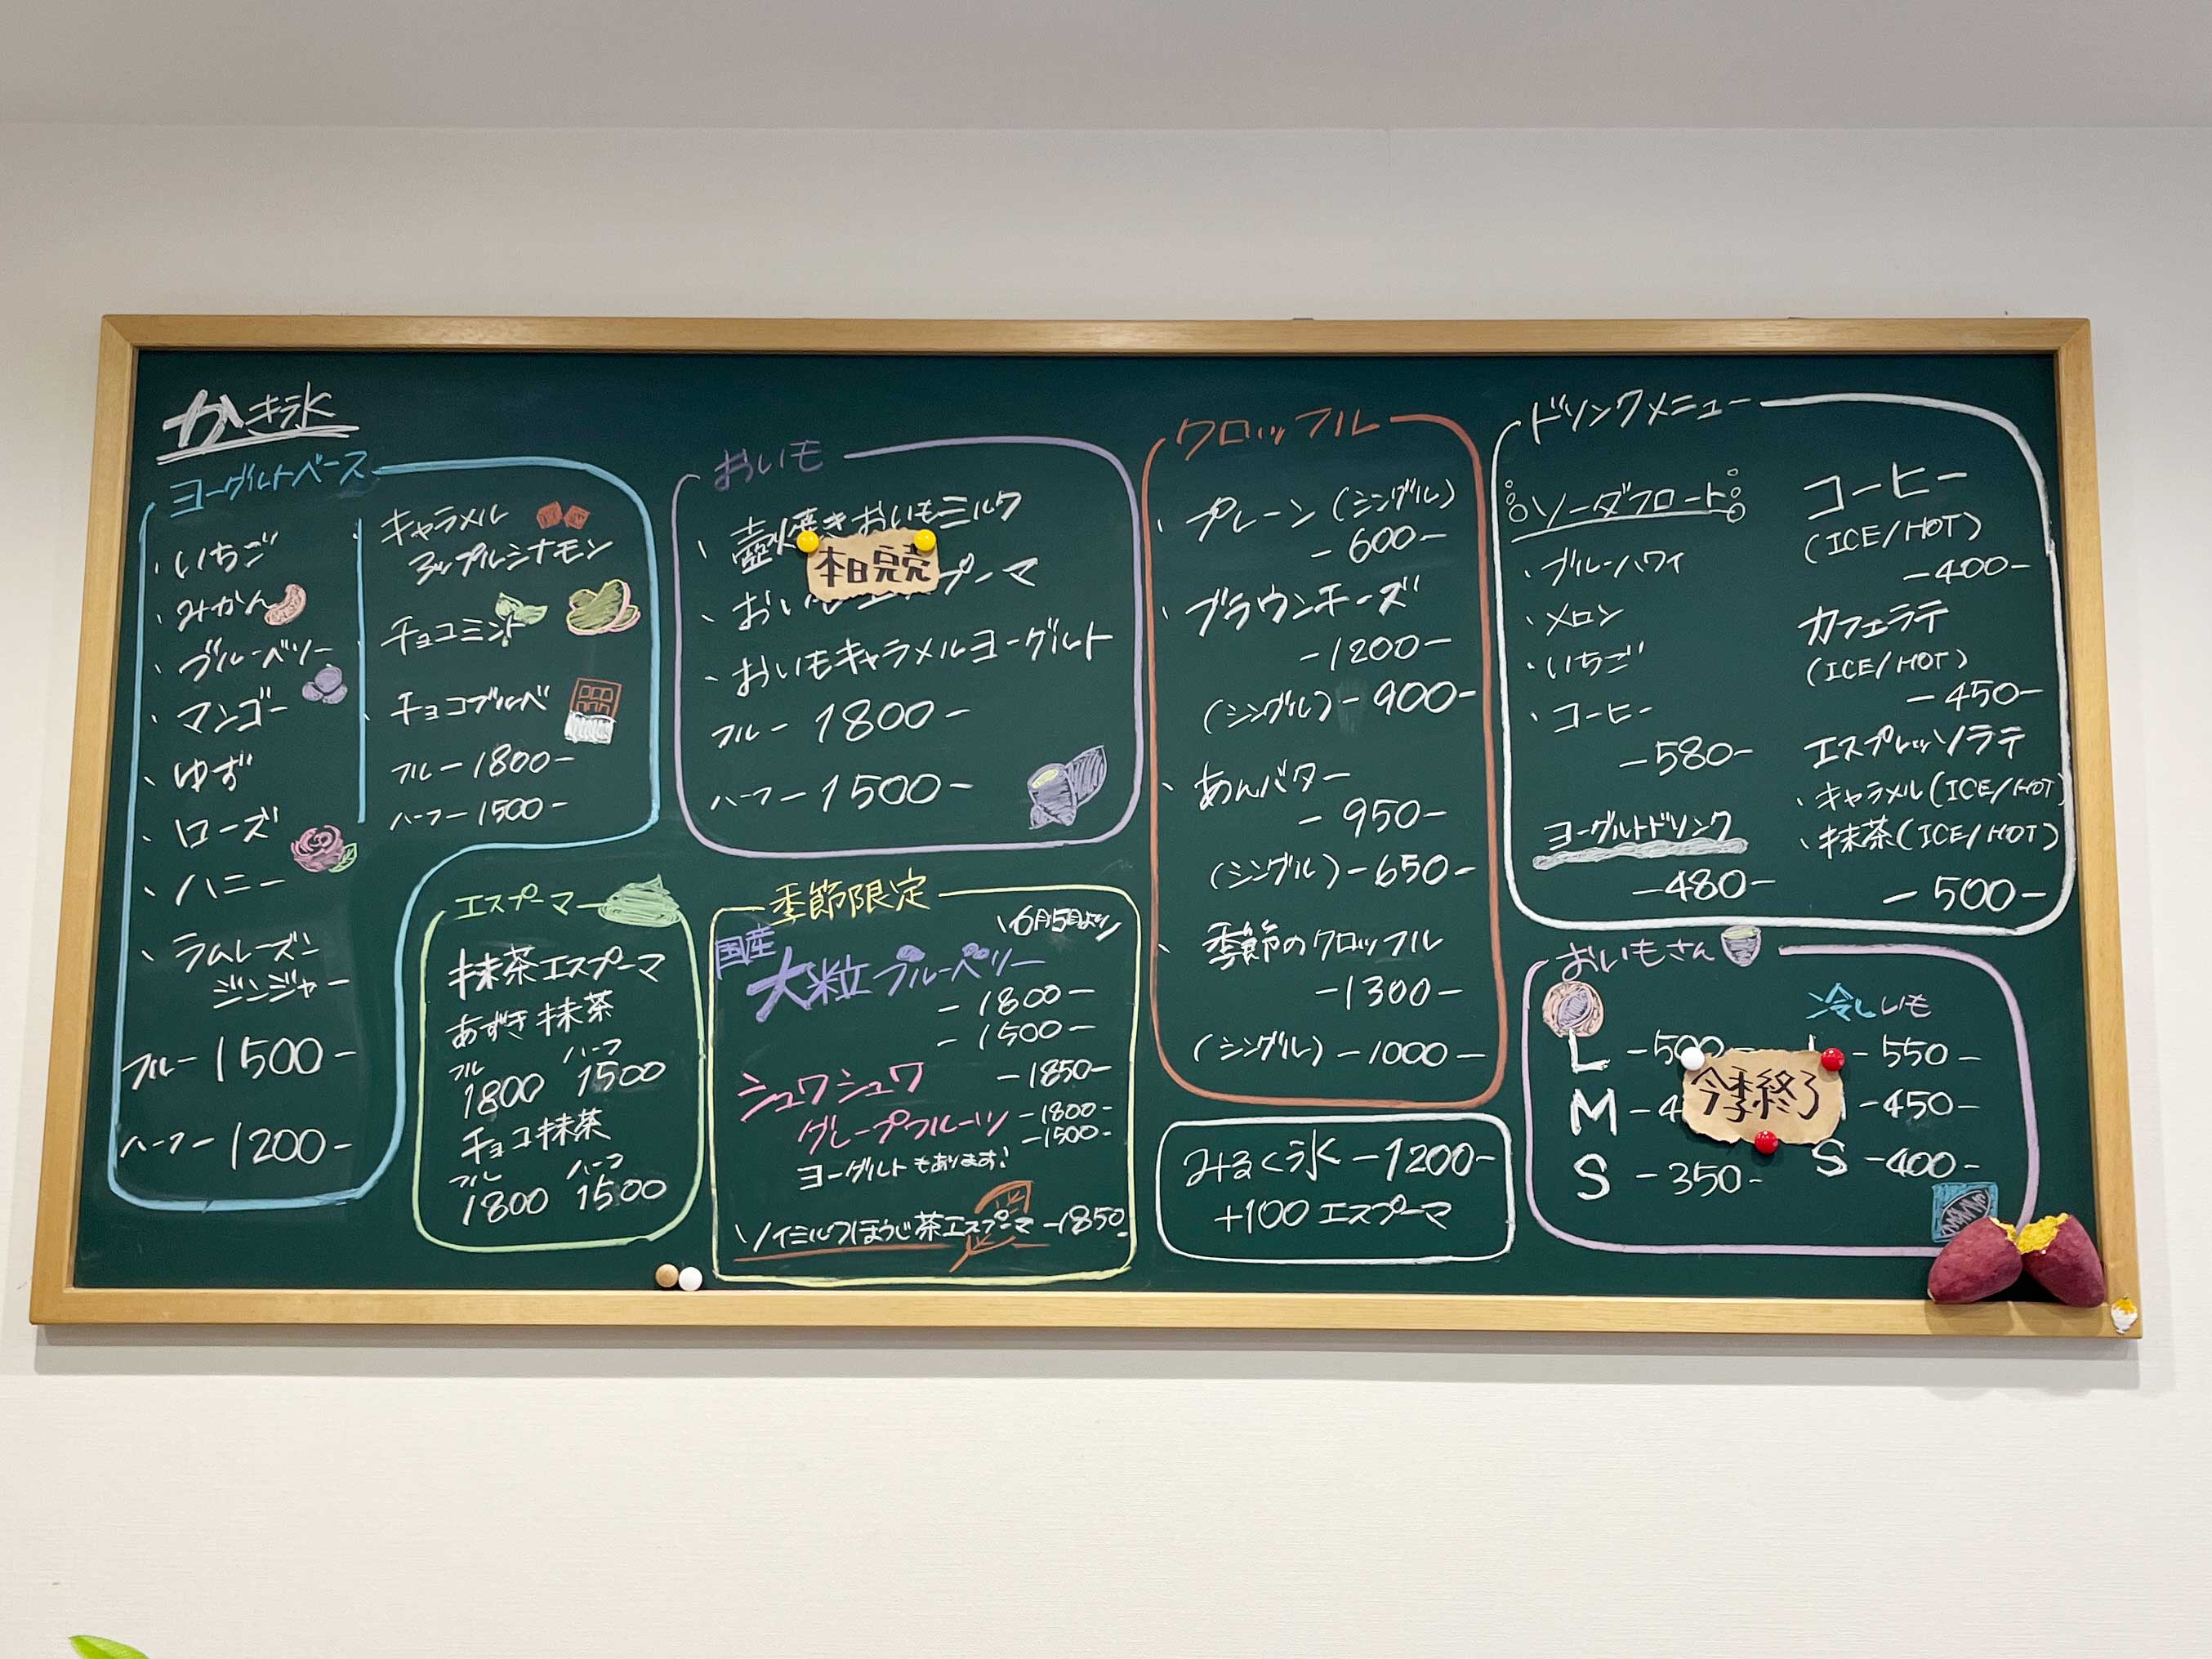 かき氷
ヨーグルトベース
・いちご
・みかん
・ブルーベリー
・マンゴー
・ゆず
・ローズ
・ハニー
・ラムレーズン
ジンジャー
フルー1500-
ハーフー1200-
・キャラメル
アップルシナモン
・チョコミント
・チョコブルベ
フルー1800-
ハーフー1500-
エスプーマ
抹茶エスプーマ
あずき抹茶
フル ハーフ
1800 1500
チョコ抹茶
フル ハーフ
1800 1500
おいも
・壺焼きおいもミルク
本日完売
・おい プーマ
・おいもキャラメルヨーグルト
フルー1800-
ハーフー1500-
季節限定
6月5日より
国産
大粒ブルーベリー
-1800-
-1500-
シュワシュワ -1850-
グレープフルーツ -1800-
-1500-
ヨーグルトもあります!
ソイミルクほうじ茶エスプーマ -1850-
クロッフル
・プレーン(シングル)
-600-
・ブラウンチーズ
-1200-
(シングル)-900-
・あんバター
-950-
(シングル)-650-
・季節のクロッフル
-1300-
(シングル)-1000-
みるく氷-1200-
+100エスプーマ
ドリンクメニュー
ソーダフロート
・ブルーハワイ
・メロン
・いちご
・コーヒー
-580-
ヨーグルトドリンク
-480-
コーヒー
(ICE/HOT)
-400-
カフェラテ
(ICE/HOT)
-450-
エスプレッソラテ
・キャラメル(ICE/HOT)
・抹茶(ICE/HOT)
-500-
おいもさん
L -500-
M -4
S -350-
今季終了
冷しいも
-550-
-450-
S -400-